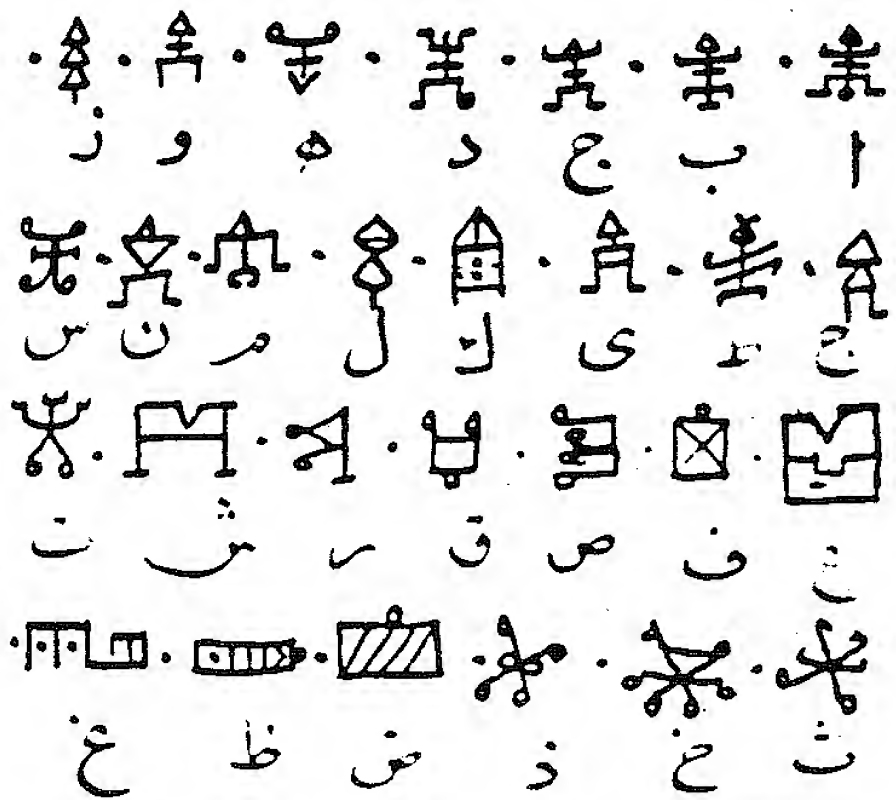 ا ب ج د ه و ز
ح ط ى ك ل م ن س
ع ف ص ق ر ش ت
ث خ ذ ض ظ غ